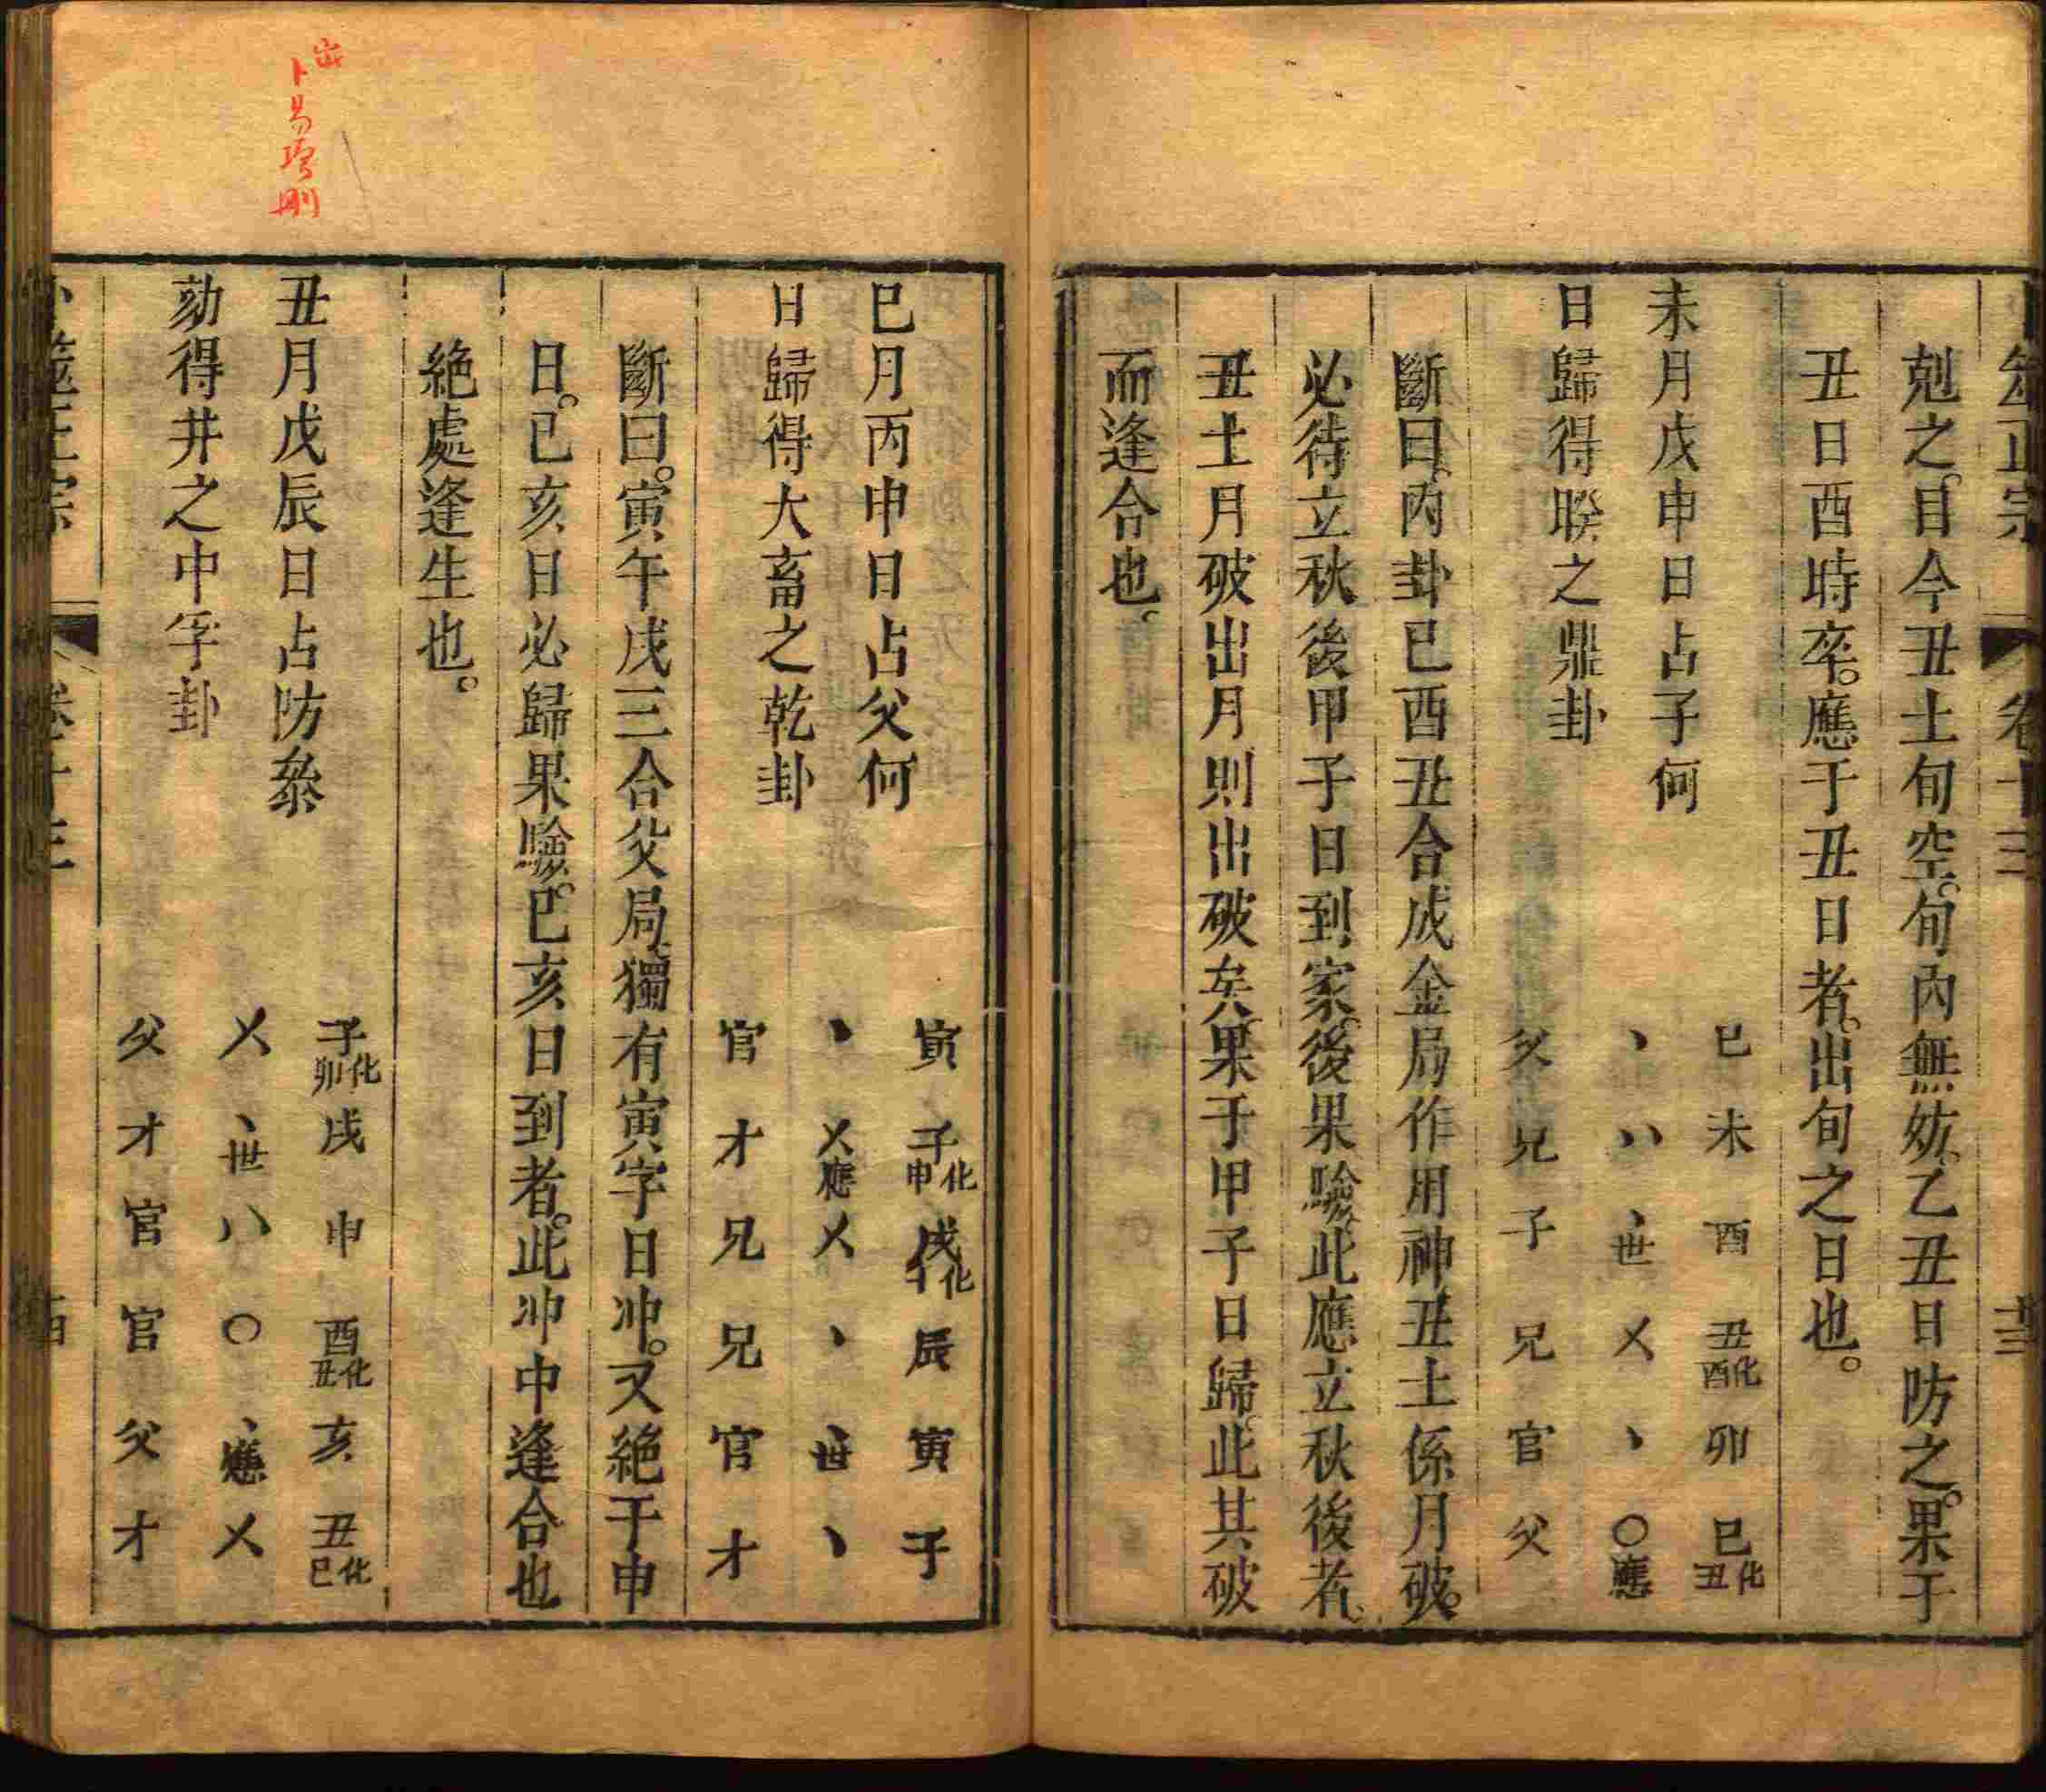 卜筮正宗 卷十三 十三
剋之。目今丑土旬空。旬內無妨。乙丑日防之。果于
丑日酉時卒。應于丑日者。出旬之日也。
未月戊申日占子何
日歸得睽之鼎卦
巳 未 酉 丑化酉 卯 巳化丑
丶 八 丶世 乂 丶 〇應
父 兄 子 兄 官 父
斷曰。內卦巳酉丑合成金局作用神丑土係月破。
必待立秋後甲子日到家。後果驗。此應立秋後者。
丑土月破出月則出破矣。果于甲子日歸。此其破
而逢合也。
巳月丙申日占父何
日歸得大畜之乾卦
寅 子化申 戌化午 辰 寅 子
丶 乂應 乂 丶 丶世 丶
官 才 兄 兄 官 才
斷曰。寅午戌三合父局。獨有寅字日冲。又絕于申
日。己亥日必歸果驗。己亥日到者。此冲中逢合也
絕處逢生也。
丑月戊辰日占防叅
劾得井之中孚卦
子化卯 戌 申 酉化丑 亥 丑化巳
乂 丶世 八 〇 丶應 乂
父 才 官 官 父 才
卜筮正宗 卷十三
卜易
刪